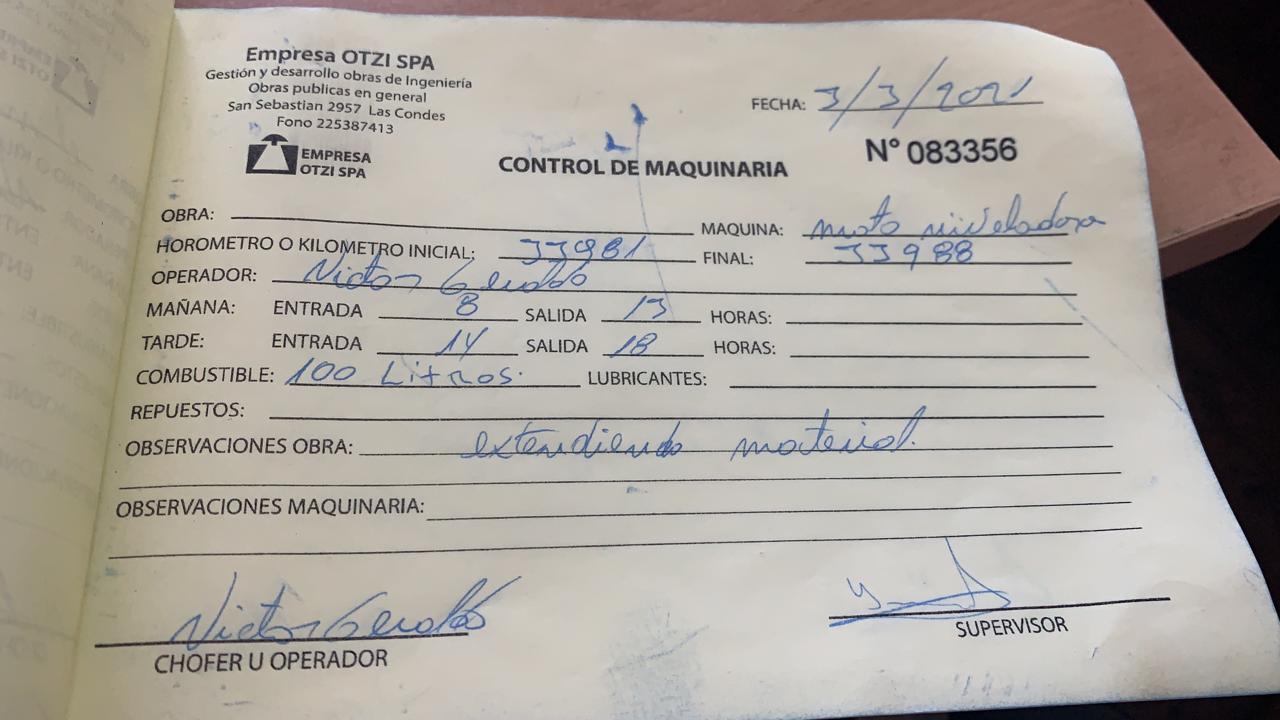 Empresa OTZI SPA
Gestión y desarrollo obras de Ingeniería
Obras publicas en general
San Sebastian 2957 Las Condes
Fono 225387413
EMPRESA
OTZI SPA
FECHA: 3/3/2021
N° 083356
CONTROL DE MAQUINARIA
OBRA: MAQUINA: moto niveladora
HOROMETRO O KILOMETRO INICIAL: 33981 FINAL: 33988
OPERADOR: Victor
MAÑANA: ENTRADA 8 SALIDA 13 HORAS:
TARDE: ENTRADA 14 SALIDA 18 HORAS:
COMBUSTIBLE: 100 Litros. LUBRICANTES:
REPUESTOS:
OBSERVACIONES OBRA: extendiendo material.
OBSERVACIONES MAQUINARIA:
Victor
CHOFER U OPERADOR
SUPERVISOR